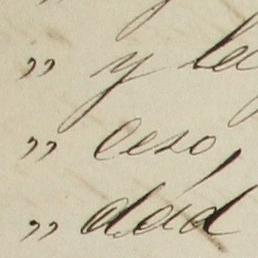 „ y le
„ ceso,
„ dad